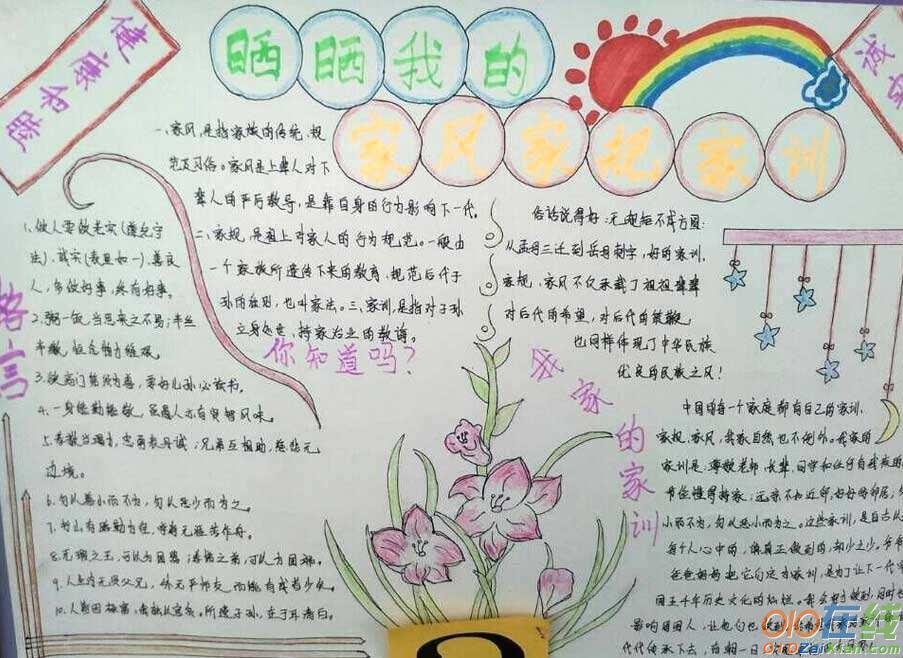 晒晒我的
家风家规家训
健康和睦
诚
格言
1.做人要做老实(遵纪守
法)、诚实(表里如一)、善良
人，多做好事，终有好事。
2.粥一饭，当思来之不易；半丝
半缕，恒念物力维艰。
3.欲高门第须为善，要好儿孙必读书。
4.一身能勤能敬，愚人亦有贤智风味。
5.孝敬当竭力，忠勇表丹诚；兄弟互相助，慈悲无
边境。
6.勿以善小而不为，勿以恶少而为之。
7.书山有路勤为径，学海无涯苦作舟。
8.无瑕之玉，可以为国器；孝悌之弟，可以为国瑞。
9.人生内无贤父兄，外无严师友，而能有成者少矣。
10.
一、家风，是指家族的传统、规
范及习俗。家风是上辈人对下
辈人的严厉教导，是靠自身的行为影响下一代。
二、家规，是祖上对家人的行为规范。一般由
一个家族所遗传下来的教育、规范后代子
孙的准则，也叫家法。三、家训，是指对子孙
立身处世，持家治业的教诲。
你知道吗？
俗话说得好：无规矩不成方圆：
从孟母三迁到岳母刺字，好的家训、
家规、家风不仅承载了祖祖辈辈
对后代的希望，对后代的鞭策，
也同样体现了中华民族
优良的民族之风！
我家的家训
中国的每一个家庭都有自己的家训、
家规、家风，我家自然也不例外。我家的
家训是：尊敬老师、长辈、同学和任何
节俭懂得持家；远亲不如近邻，好好的邻居，
小而不为，勿以恶小而为之。这些家训，是自古以
每个人心中的，偶真正做到的，却少之少。爷爷
爸爸妈妈把它们定为家训，是为了让下一代
国五千年历史文化的灿烂。我会努力做到，同时也
影响周围人，让他们也做到
代代传承下去，有朝一日
OIO在线
OIOZaiXian.com